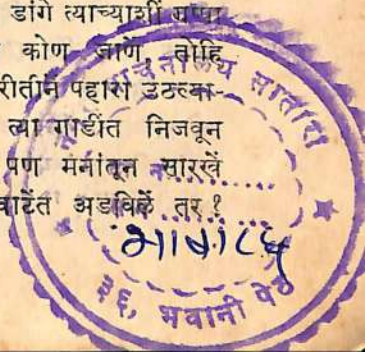 डांगे त्याच्याशीं गप्पा
कोण जाणे, तोहि
रीतीनें पहारा उठल्या-
त्या गाडींत निजवून
पण मनांतून सारखें
वाटेंत अडविलें तर ?
वाचनालय सातारा
३६, भवानी पेठ